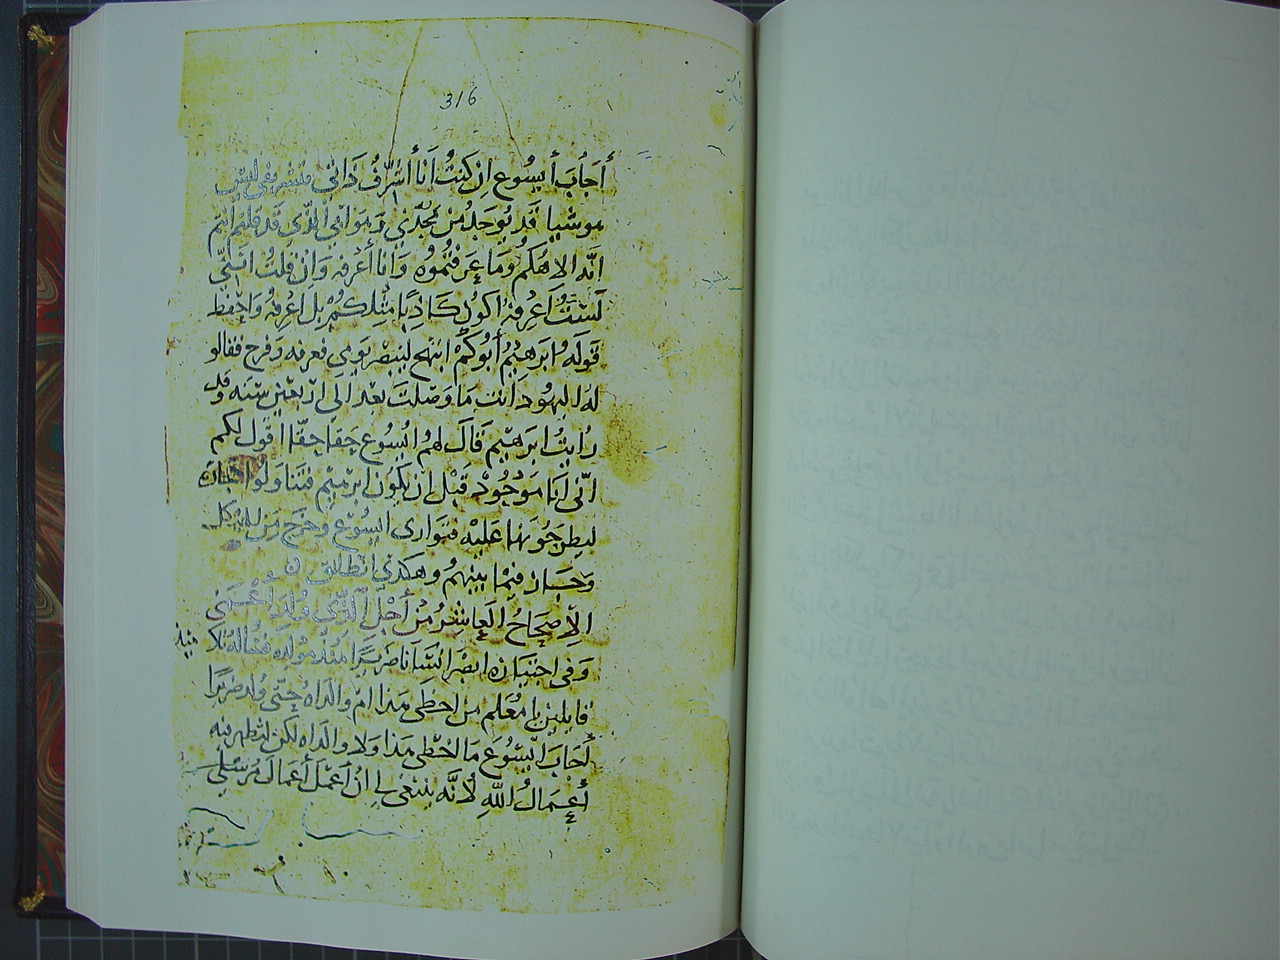 316
أجاب أيسوع ان كنتُ أنا أشرّف ذاتي فتشريفي ليس
هو شيا قد يوجد من يمجدني وهو ابي الذي قد قلتم انتم
انّه الاهكم وما عرفتموه وانا أعرفه وان قلتُ انني
لستُ اعرفه اكون كاذبًا مثلكم بل اعرفه واحفظ
قوله ابرهيم أبوكم ابتهج لينصر يومي فعرفه وفرح فقالو
له اليهود انت ما وصلت بعد الى اربعين سنه وقد
رايتُ ابرهيم قال لهم ايسوع حقا حقّا اقول لكم
انّى أنا موجود قبل ان يكون ابرهيم فتناولوا حجارة
ليطرحونها عليه فتوارى ايسوع وخرج من الهيكل
وجاز فيما بينهم وهكذي انطلق
الاصحاحُ العاشرُ من أجل الذي وُلد أعمى
وفى اجتيازه ابصر انسانا ضريرًا منذ مولده فساله تلا
ميذه
قايلين يا معلم من اخطى هذا ام والداه حتّى ولد ضريرًا
أجاب ايسوع ما اخطى هذا ولا والداه لكن لتظهر فيه
أعمالُ اللّٰه لأنّه ينبغى لي ان أعمل أعمال مُرسلي